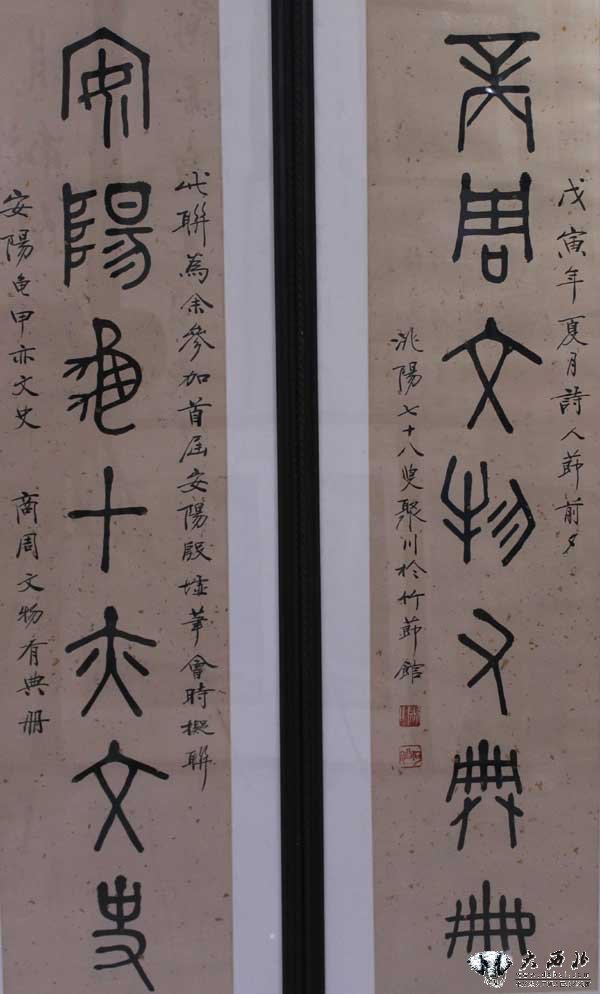 戊寅年夏月詩人節前夕
商周文物有典冊
洮陽七十八叟聚川於竹節館
此聯為余參加首屆安陽殷墟筆會時擬聯
安陽龜甲亦文史
安陽龜甲亦文史 商周文物有典冊
大西北